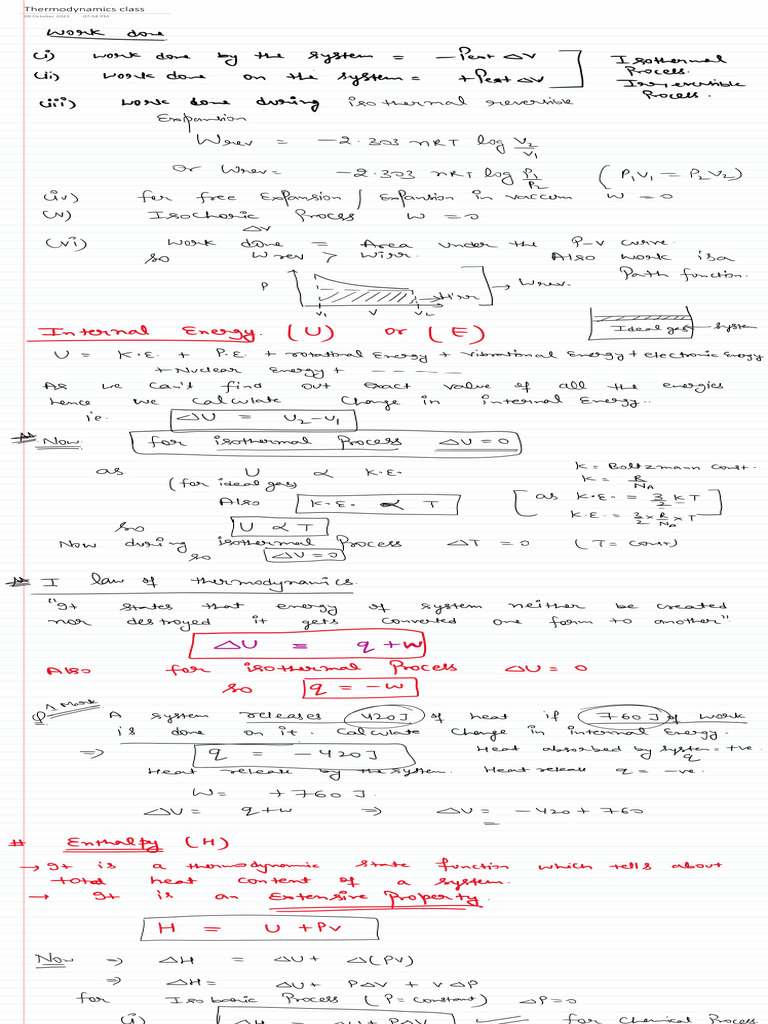 Thermodynamics class
09 October 2023 07:58 PM
Work done
(i) Work done by the system = - Pext ΔV
(ii) Work done on the system = + Pext ΔV
Isothermal Process. Irreversible Process.
(iii) Work done during isothermal reversible
Expansion
Wrev = -2.303 nRT log V2/V1
or Wrev = -2.303 nRT log P1/P2 (P1V1 = P2V2)
(iv) for free Expansion / Expansion in vaccum W = 0
(v) Isochoric Process W = 0
ΔV
(vi) Work done = Area under the P-V curve.
so Wrev > Wirr. Also work is a
Path function.
P V1 V V2 Wirr → Wrev.
Ideal gas system
Internal Energy. (U) or (E)
U = K.E. + P.E. + rotational Energy + Vibrational Energy + electronic Energy
+ Nuclear Energy + - - - - -
As we can't find out exact value of all the energies
hence we calculate change in internal Energy..
ie. ΔU = U2 - U1
Now for isothermal Process ΔU = 0
as U ∝ K.E.
(for ideal gas)
K = Boltzmann Const.
K = R/NA
Also K.E. ∝ T
[as K.E. = 3/2 KT
K.E. = 3/2 × R/NA × T]
so U ∝ T
Now during isothermal Process ΔT = 0 (T = Const)
so ΔU = 0
# I law of thermodynamics.
"It states that energy of system neither be created
nor destroyed it gets converted one form to another"
ΔU = q + w
Also for isothermal Process ΔU = 0
so q = -w
Q. 1 Mark A system releases 420J of heat if 760J of work
is done on it. Calculate Change in internal Energy.
⇒ q = -420J
Heat absorbed by system = +ve.
q
Heat release by the system. Heat release q = -ve.
W = +760 J.
ΔU = q + w ⇒ ΔU = -420 + 760
# Enthalpy (H)
→ It is a thermodynamic state function which tells about
total heat content of a system.
→ It is an Extensive Property.
H = U + PV
Now ⇒ ΔH = ΔU + Δ(PV)
⇒ ΔH = ΔU + PΔV + VΔP
for Isobaric Process (P = Constant) ΔP = 0
(i) ΔH = ΔU + PΔV for Chemical Process